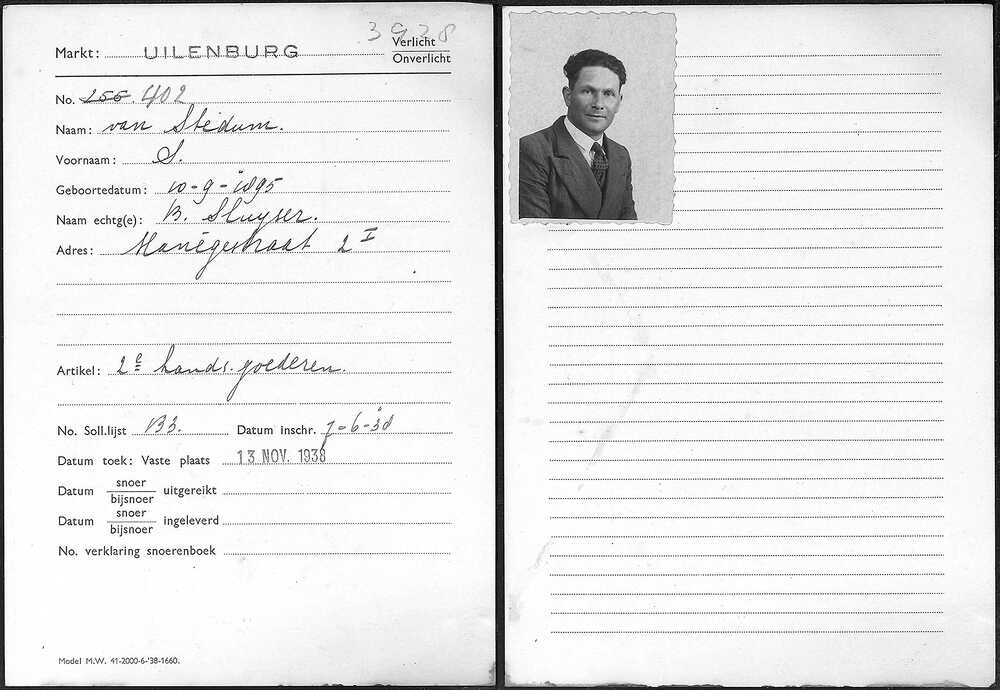 3928
Markt: UILENBURG
Verlicht
Onverlicht
No. 255. 402
Naam: van Stedum.
Voornaam: S.
Geboortedatum: 10-9-1895
Naam echtg(e): B. Sluyser.
Adres: Manègestraat 2 I
Artikel: 2e hands. goederen.
No. Soll.lijst B3. Datum inschr. 7-6-38
Datum toek: Vaste plaats 13 NOV. 1938
Datum snoer/bijsnoer uitgereikt
Datum snoer/bijsnoer ingeleverd
No. verklaring snoerenboek
Model M.W. 41-2000-6-'38-1660.